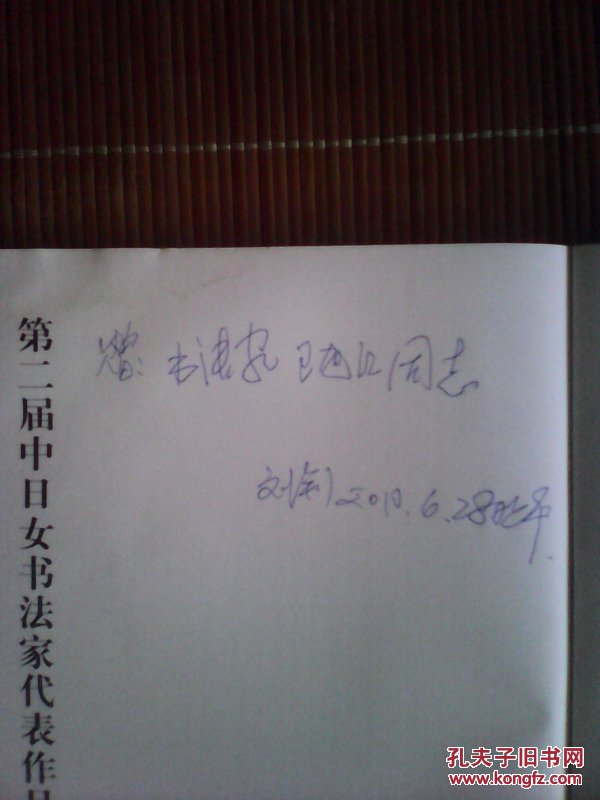 第二届中日女书法家代表作品
赠：书法家 同志
刘 6.28
孔夫子旧书网
www.kongfz.com